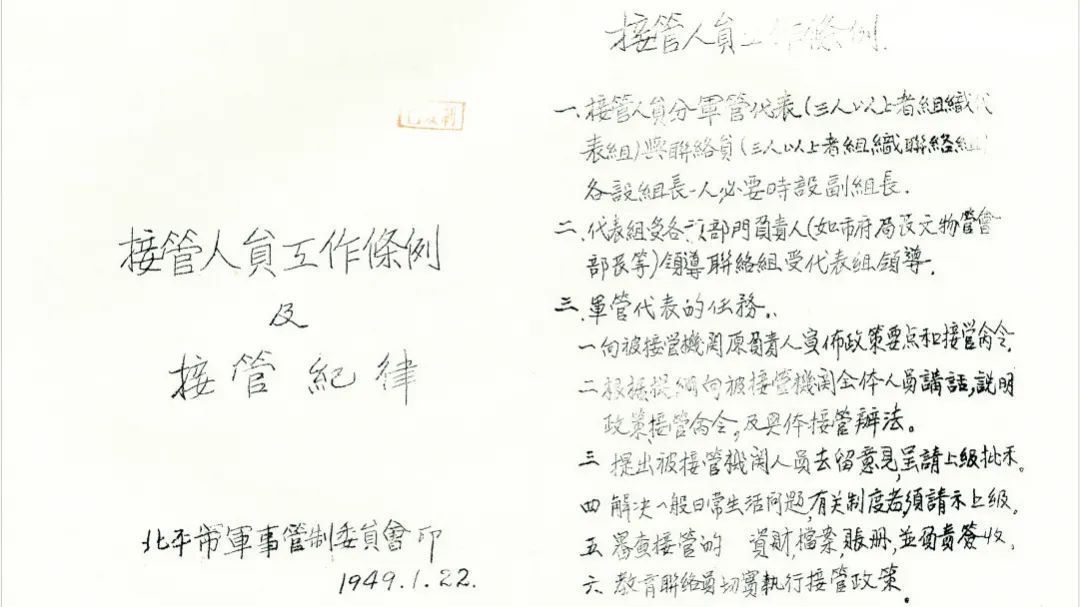 接管人員工作條例
及
接管紀律
北平市軍事管制委員會印
1949.1.22.
接管人員工作條例.
一、接管人員分軍管代表(三人以上者組織代
表組)與聯絡員(三人以上者組織聯絡組)
各設組長一人,必要時設副組長.
二、代表組受各該部門負責人(如市府局長文物管會
部長等)領導聯絡組受代表組領導.
三、軍管代表的任務..
一向被接管機関原負責人宣佈政策要点和接管命令.
二根据提綱向被接管機関全体人員講話,說明
政策接管命令,及具体接管辦法。
三提出被接管機関人員去留意見,呈請上級批示。
四解决一般日常生活问題,有关制度者,須請示上級.
五審查接管的 資財,檔案賬册,並負責簽收.
六教育聯絡員切實執行接管政策。